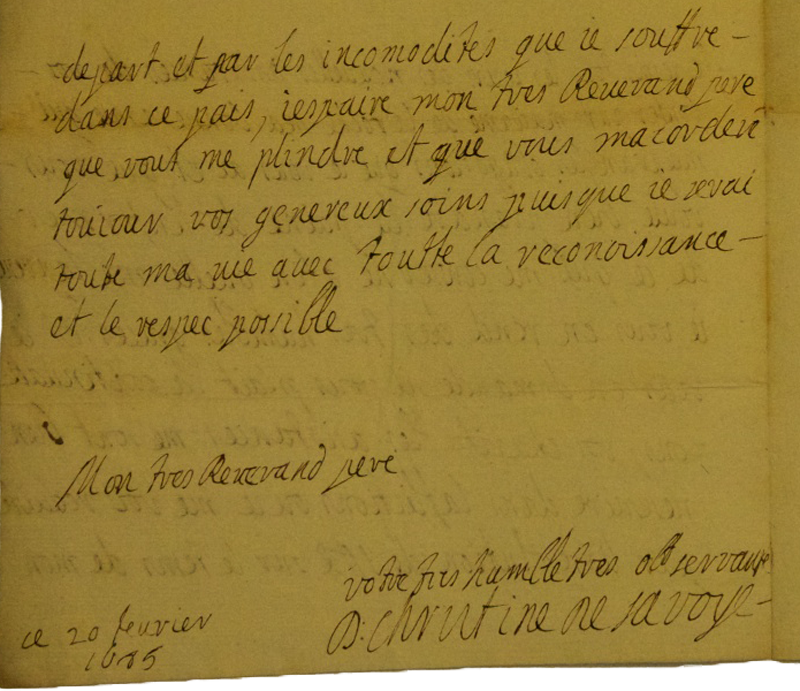 depart et par les incomodites que ie souffre
dans ce pais, iespaire mon tres Reuerand pere
que vous me plindre et que vous macordere
touiour vos genereux soins puisque ie serai
toute ma uie auec toutte la reconoissance
et le respec possible
Mon tres Reuerand pere
votre tres humble tres
D: Christine de Savoye
ce 20 feurier
1685